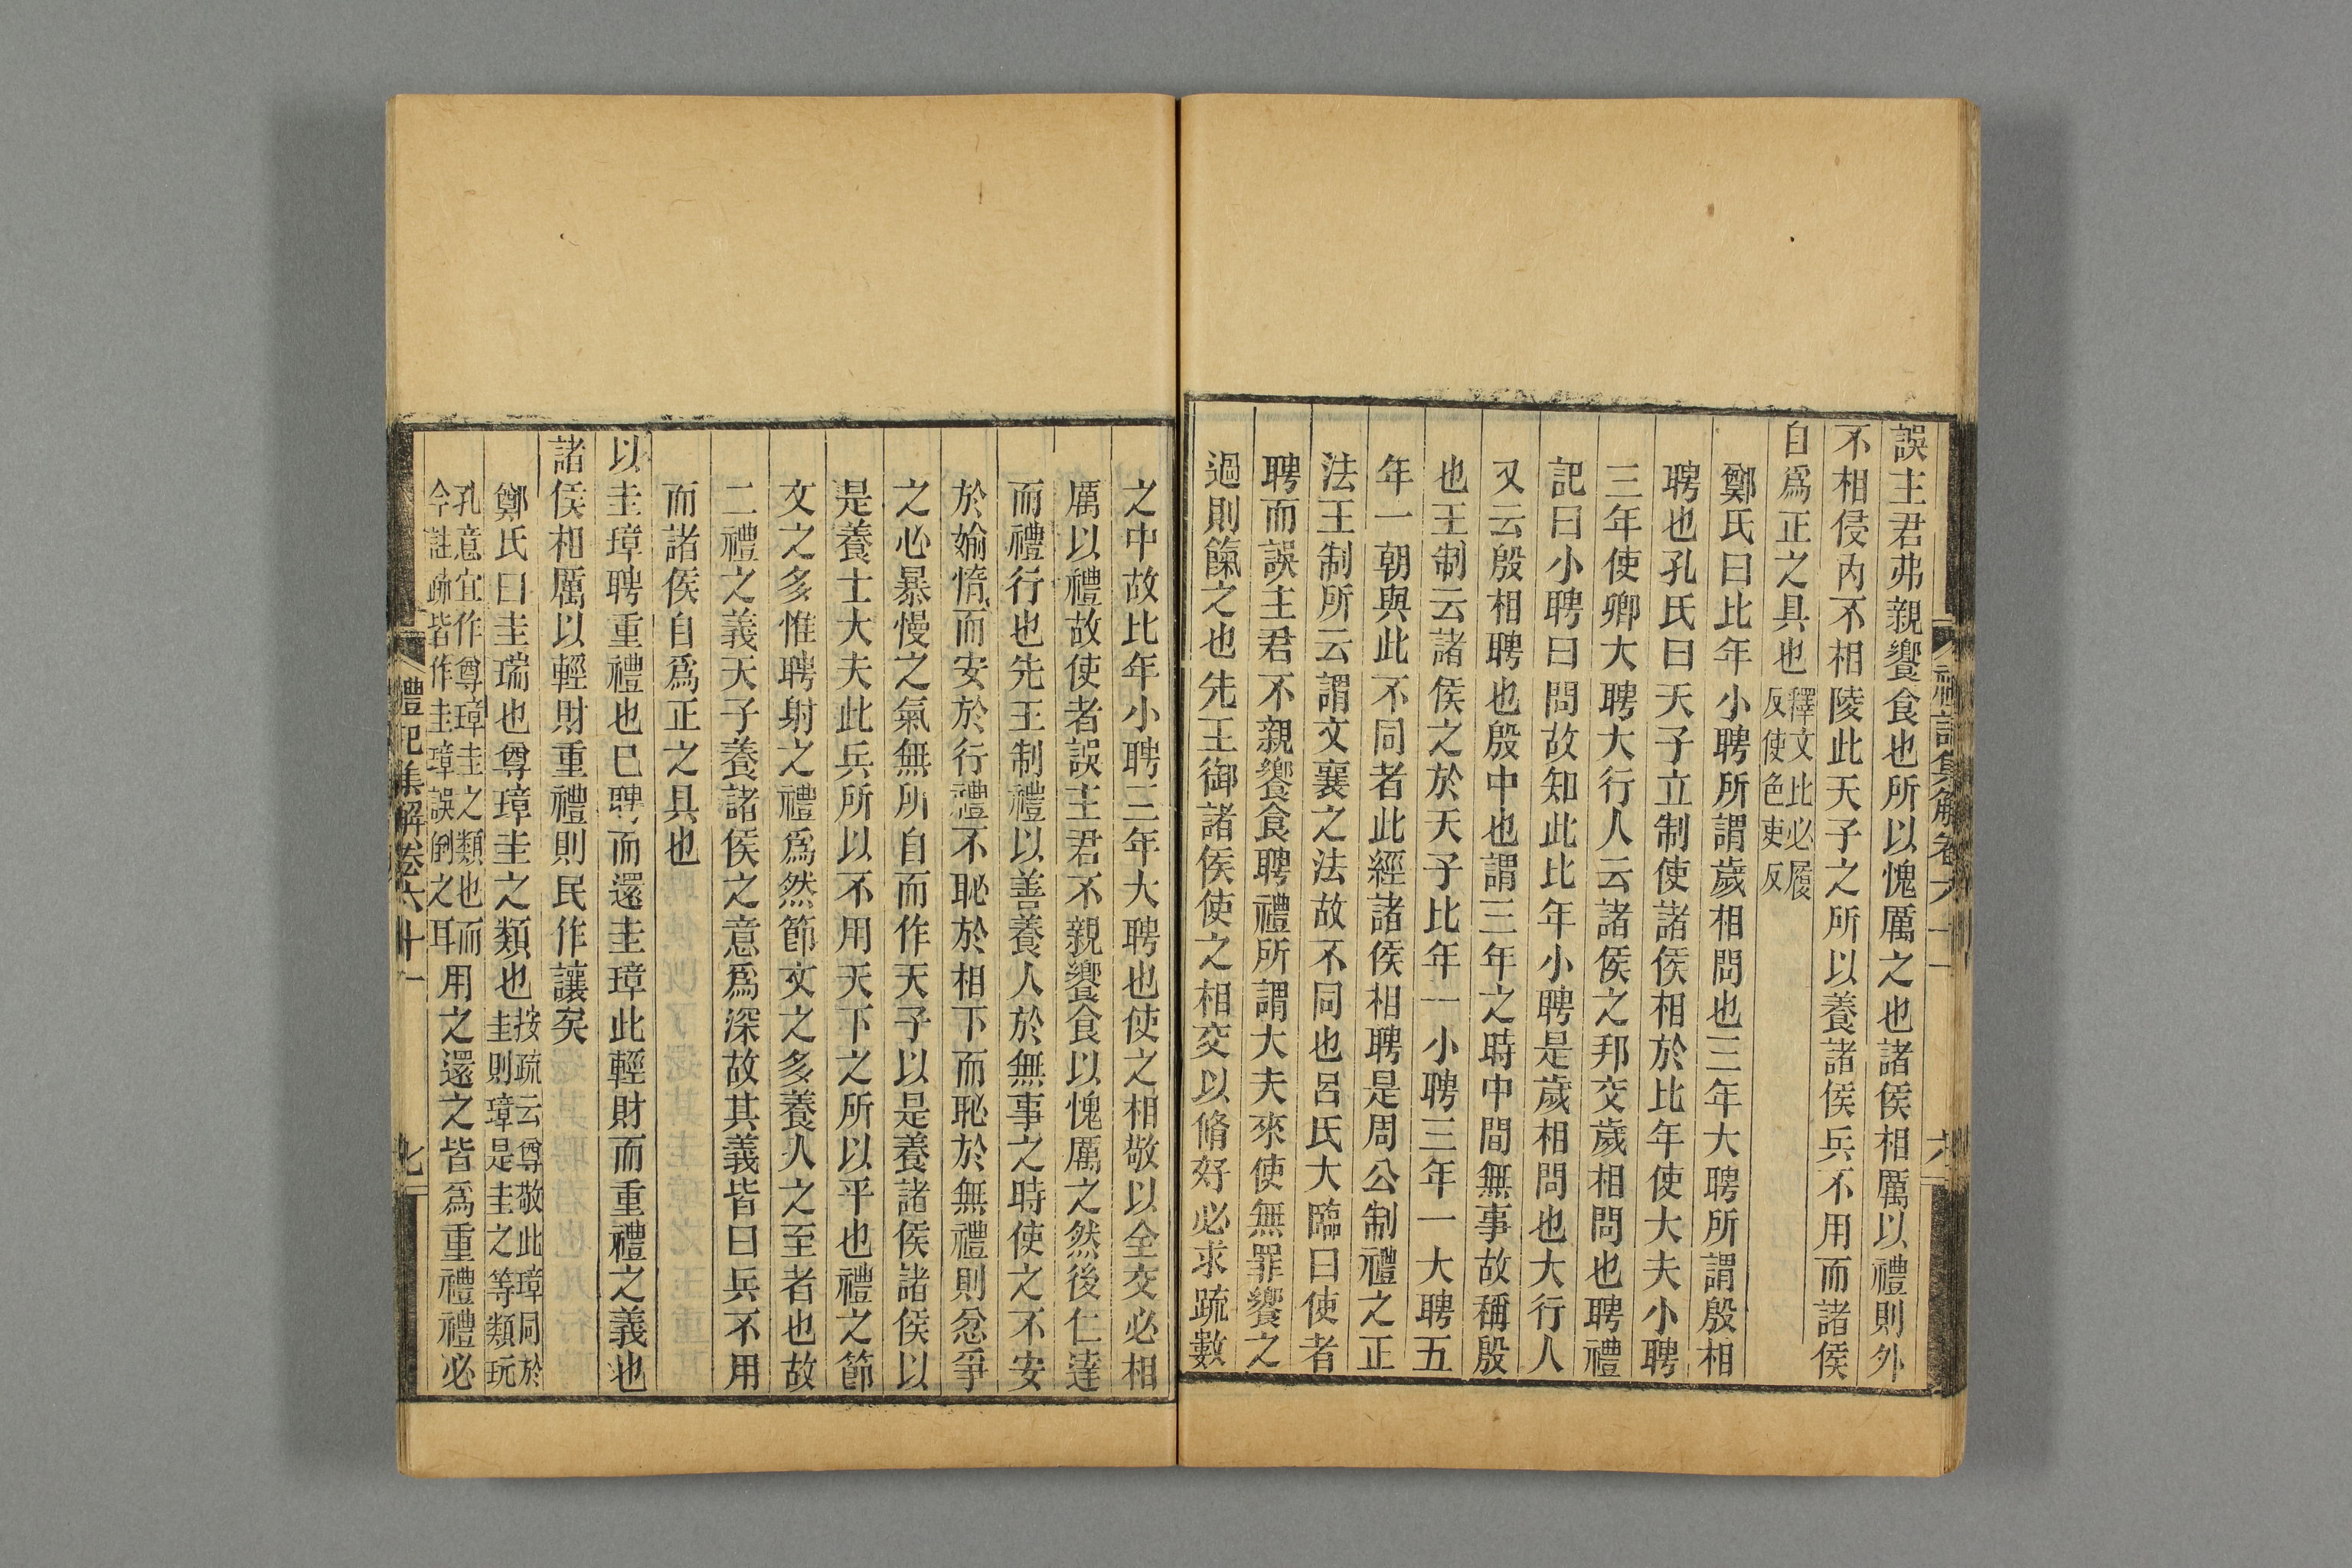 誤主君弗親饗食也所以愧厲之也諸侯相厲以禮則外
不相侵內不相陵此天子之所以養諸侯兵不用而諸侯
自爲正之具也釋文比必履反使色吏反
鄭氏曰比年小聘所謂歲相問也三年大聘所謂殷相
聘也孔氏曰天子立制使諸侯相於比年使大夫小聘
三年使卿大聘大行人云諸侯之邦交歲相問也聘禮
記曰小聘曰問故知此比年小聘是歲相問也大行人
又云殷相聘也殷中也謂三年之時中間無事故稱殷
也王制云諸侯之於天子比年一小聘三年一大聘五
年一朝與此不同者此經諸侯相聘是周公制禮之正
法王制所云謂文襄之法故不同也呂氏大臨曰使者
聘而誤主君不親饗食聘禮所謂大夫來使無罪饗之
過則餼之也先王御諸侯使之相交以脩好必求疏數
之中故比年小聘三年大聘也使之相敬以全交必相
厲以禮故使者誤主君不親饗食以愧厲之然後仁達
而禮行也先王制禮以善養人於無事之時使之不安
於婾惰而安於行禮不恥於相下而恥於無禮則忿爭
之必暴慢之氣無所自而作天子以是養諸侯諸侯以
是養士大夫此兵所以不用天下之所以平也禮之節
文之多惟聘射之禮爲然節文之多養人之至者也故
二禮之義天子養諸侯之意爲深故其義皆曰兵不用
而諸侯自爲正之具也
以圭璋聘重禮也已聘而還圭璋此輕財而重禮之義也
諸侯相厲以輕財重禮則民作讓矣
鄭氏曰圭瑞也尊璋圭之類也按疏云尊敬此璋同於圭則璋是圭之等類玩
孔意宜作尊璋圭之類也而今註疏皆作圭璋誤倒之耳用之還之皆爲重禮禮必
禮記集解卷六十一
七